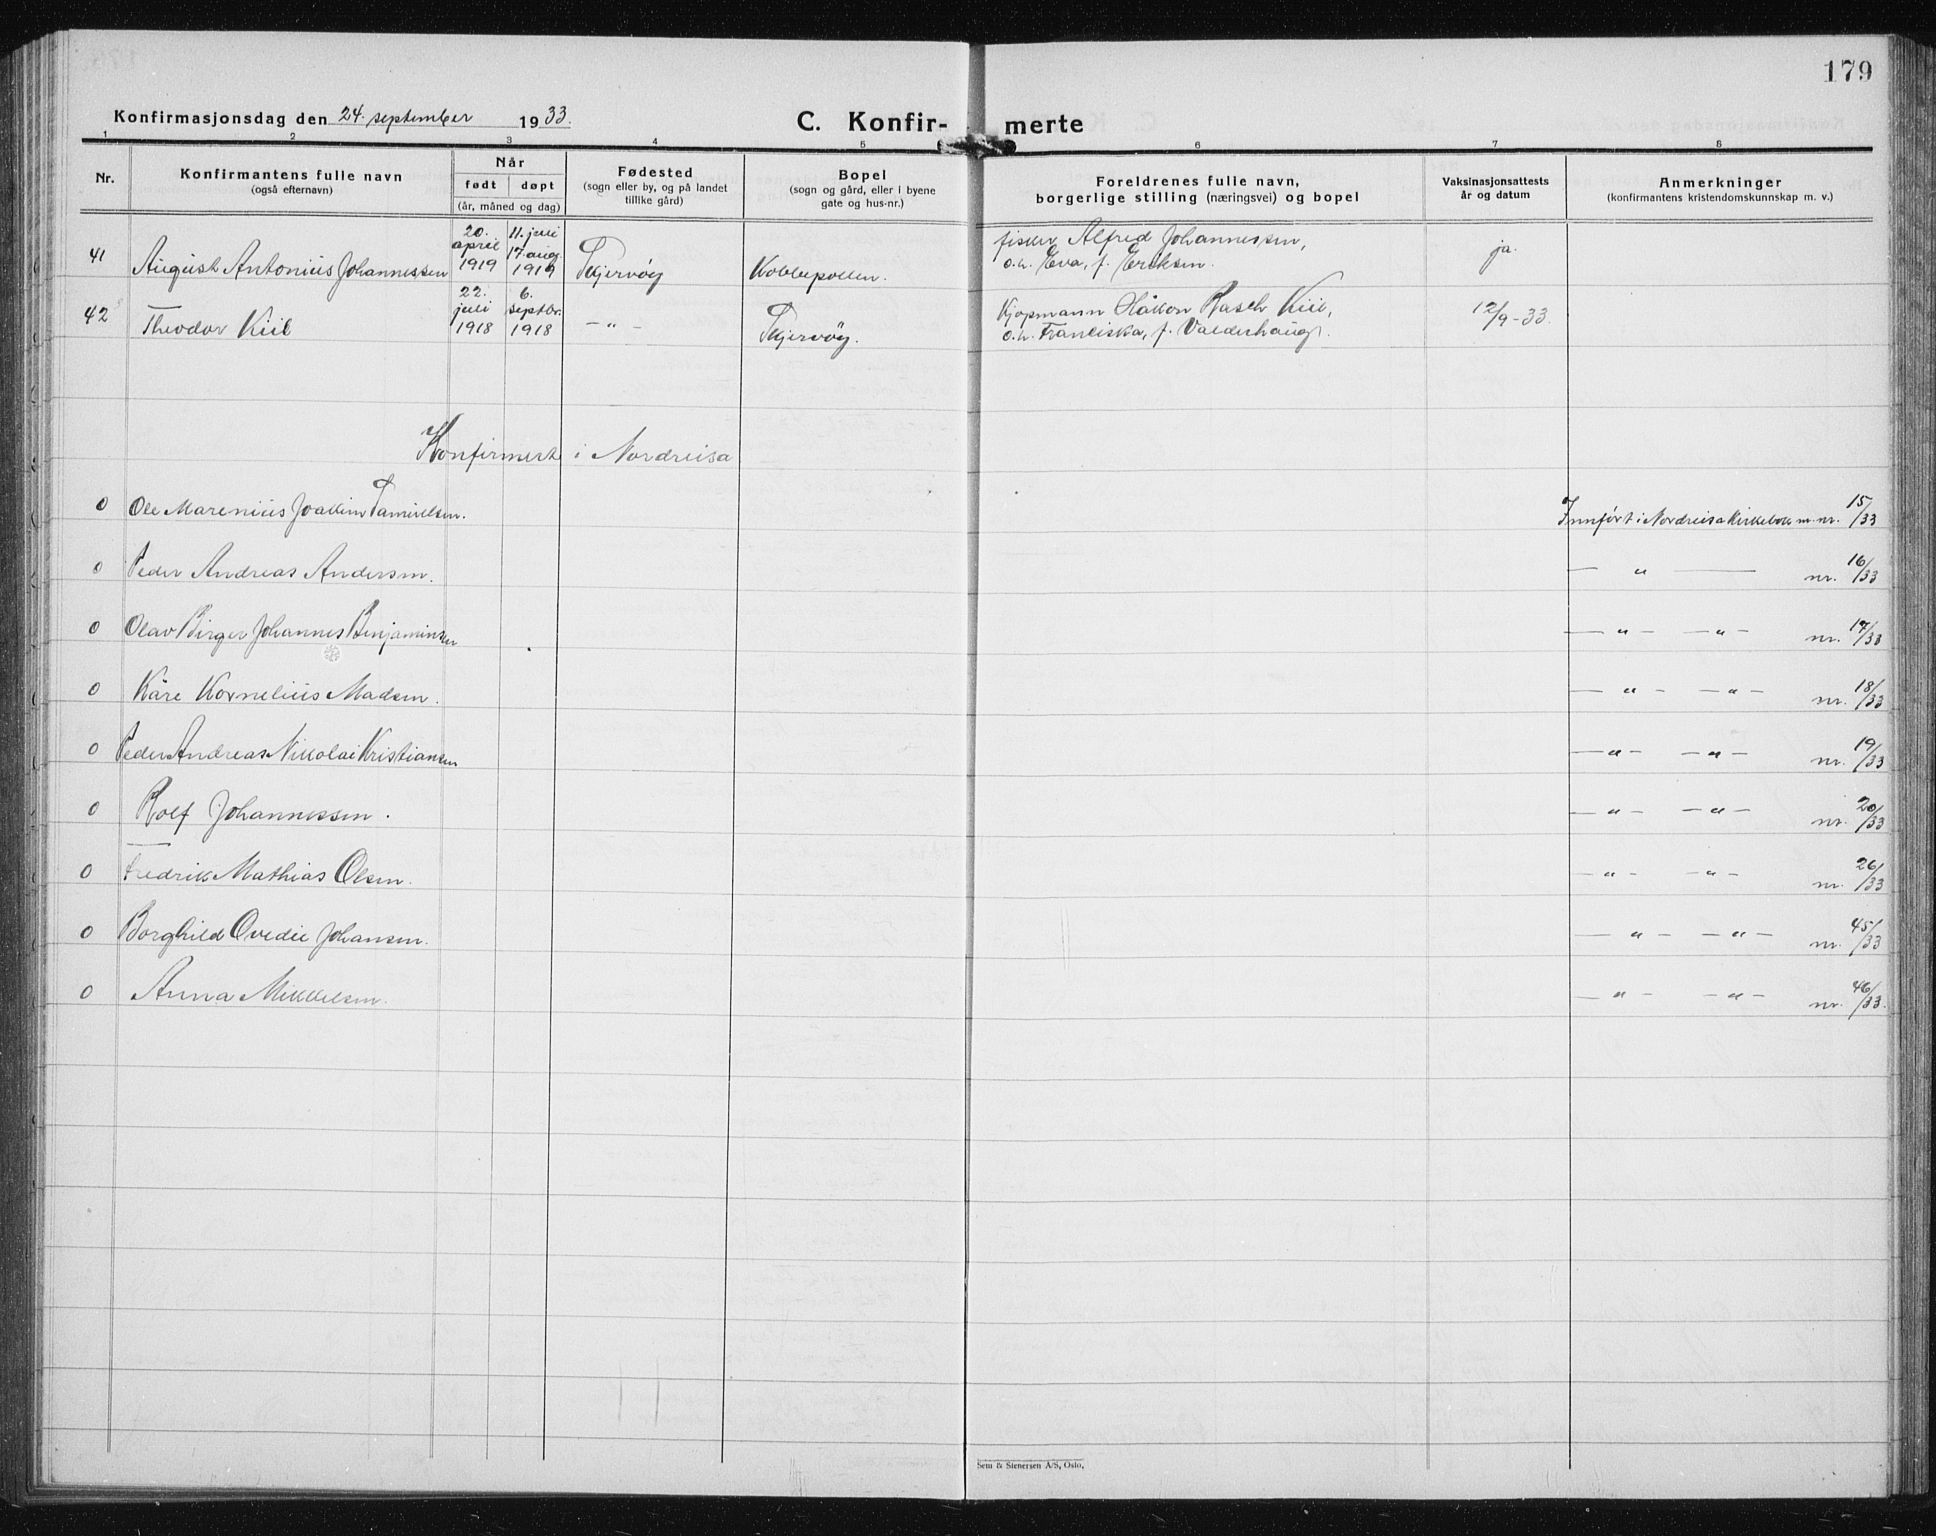 179
Konfirmasjonsdag den 24. september 1933.
C. Konfir- merte
1 2 3 4 5 6 7 8
Nr.
Konfirmantens fulle navn
(også efternavn)
Når
født døpt
(år, måned og dag)
Fødested
(sogn eller by, og på landet
tillike gård)
Bopel
(sogn og gård, eller i byene
gate og hus-nr.)
Foreldrenes fulle navn,
borgerlige stilling (næringsvei) og bopel
Vaksinasjonsattests
år og datum
Anmerkninger
(konfirmantens kristendomskunnskap m. v.)
41 August Antonius Johannessen 20. april 1919 11. juli 17. aug. 1919 Skjervøy Kobbepollen. fisker Alfred Johannessen,
o.h. Eva, f. Eriksen. ja.
42 Theodor Kiil 22. juli 1918 6. septbr. 1918 -"- Skjervøy. Kjøpmann Håkon Rasch Kiil,
o.h. Franciska, f. Valderhaug. 12/9-33.
Konfirmert i Nordreisa
0 Ole Marenius Joakim Samuelsen. Innført i Nordreisa Kirkebok m. nr. 15/33
0 Peder Andreas Andersen. — " — nr. 16/33
0 Olav Birger Johannes Benjaminsen — " — — " — nr. 17/33
0 Kåre Kornelius Madsen. — " — — " — nr. 18/33
0 Peder Andreas Nikolai Kristiansen — " — — " — nr. 19/33
0 Rolf Johannessen. — " — — " — nr. 20/33
0 Fredrik Mathias Olsen. — " — — " — nr. 26/33
0 Borghild Ovedie Johansen. — " — — " — nr. 45/33
0 Anna Mikkelsen. — " — — " — nr. 46/33.
Sem & Stenersen A/S, Oslo.